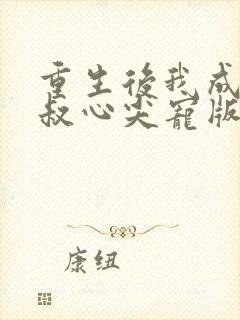 重生後我成
叔心尖寵版
康纽